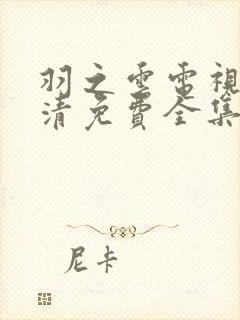 羽之雲電視
清免費全集
尼卡